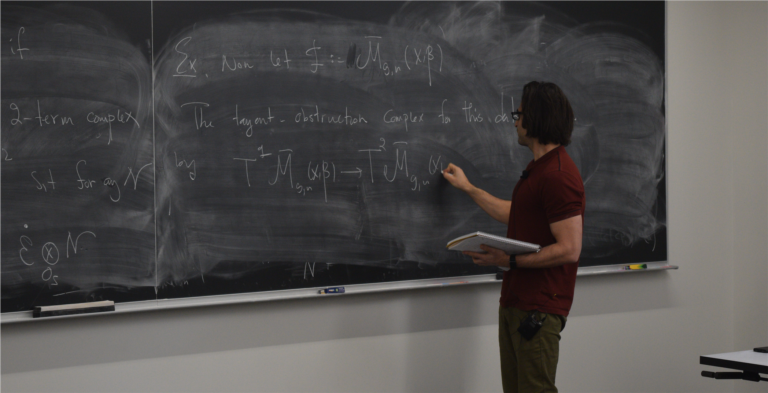 if
2-term complex
2
s.t for any N
Ė ⊗ N
O_S
Ex. Now let F := M̄_{g,n}(X,β)
The tangent-obstruction complex for this
by T¹M̄_{g,n}(X,β) → T²M̄_{g,n}(X,
N